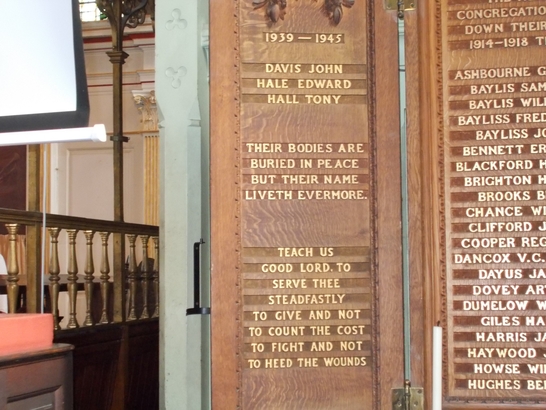 1939 — 1945
DAVIS JOHN
HALE EDWARD
HALL TONY
THEIR BODIES ARE
BURIED IN PEACE
BUT THEIR NAME
LIVETH EVERMORE.
TEACH US
GOOD LORD. TO
SERVE THEE
STEADFASTLY
TO GIVE AND NOT
TO COUNT THE COST
TO FIGHT AND NOT
TO HEED THE WOUNDS
DOWN THEIR
1914-1918
ASHBOURNE
BAYLIS
BAYLIS
BAYLISS
BAYLISS
BENNETT
BLACKFORD
BRIGHTON
BROOKS
CHANCE
CLIFFORD
COOPER
DANCOX V.C.
DAYUS
DOVEY
DUMELOW
GILES
HARRIS
HAYWOOD
HOWSE
HUGHES